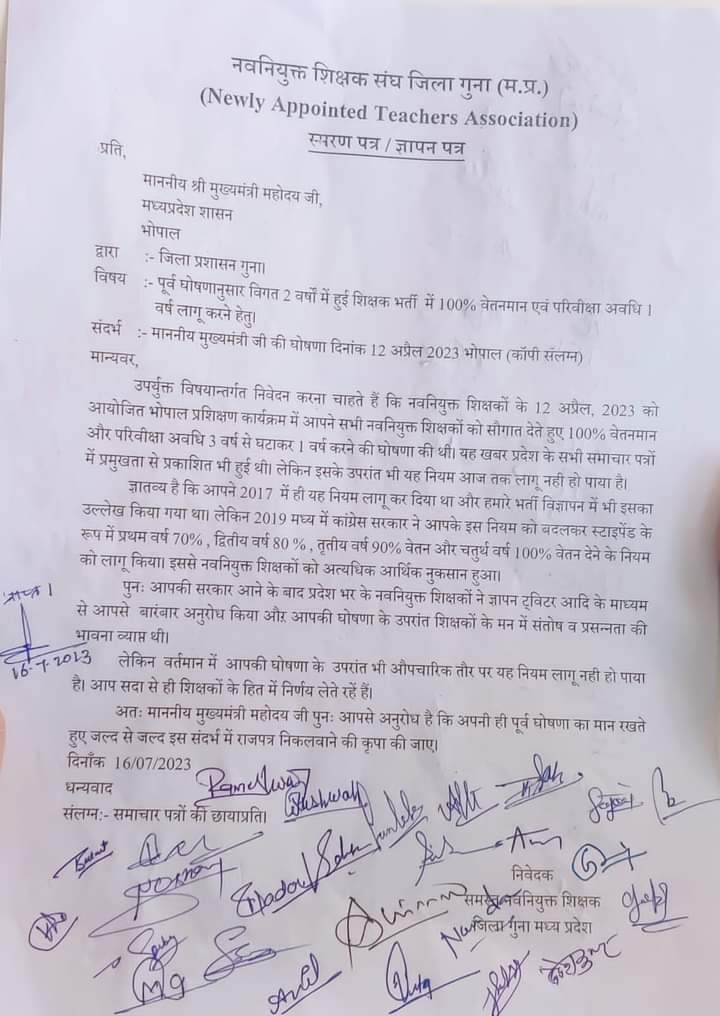 नवनियुक्त शिक्षक संघ जिला गुना (म.प्र.)
(Newly Appointed Teachers Association)
स्मरण पत्र / ज्ञापन पत्र
प्रति,
माननीय श्री मुख्यमंत्री महोदय जी,
मध्यप्रदेश शासन
भोपाल
द्वारा :- जिला प्रशासन गुना।
विषय :- पूर्व घोषणानुसार विगत 2 वर्षों में हुई शिक्षक भर्ती में 100% वेतनमान एवं परिवीक्षा अवधि 1
वर्ष लागू करने हेतु।
संदर्भ :- माननीय मुख्यमंत्री जी की घोषणा दिनांक 12 अप्रैल 2023 भोपाल (कॉपी संलग्न)
मान्यवर,
उपर्युक्त विषयान्तर्गत निवेदन करना चाहते हैं कि नवनियुक्त शिक्षकों के 12 अप्रैल, 2023 को
आयोजित भोपाल प्रशिक्षण कार्यक्रम में आपने सभी नवनियुक्त शिक्षकों को सौगात देते हुए 100% वेतनमान
और परिवीक्षा अवधि 3 वर्ष से घटाकर 1 वर्ष करने की घोषणा की थी। यह खबर प्रदेश के सभी समाचार पत्रों
में प्रमुखता से प्रकाशित भी हुई थी। लेकिन इसके उपरांत भी यह नियम आज तक लागू नही हो पाया है।
ज्ञातव्य है कि आपने 2017 में ही यह नियम लागू कर दिया था और हमारे भर्ती विज्ञापन में भी इसका
उल्लेख किया गया था। लेकिन 2019 मध्य में कांग्रेस सरकार ने आपके इस नियम को बदलकर स्टाइपेंड के
रूप में प्रथम वर्ष 70% , द्वितीय वर्ष 80 % , तृतीय वर्ष 90% वेतन और चतुर्थ वर्ष 100% वेतन देने के नियम
को लागू किया। इससे नवनियुक्त शिक्षकों को अत्यधिक आर्थिक नुकसान हुआ।
पुनः आपकी सरकार आने के बाद प्रदेश भर के नवनियुक्त शिक्षकों ने ज्ञापन ट्विटर आदि के माध्यम
से आपसे बारंबार अनुरोध किया और आपकी घोषणा के उपरांत शिक्षकों के मन में संतोष व प्रसन्नता की
भावना व्याप्त थी।
16-7-2023
लेकिन वर्तमान में आपकी घोषणा के उपरांत भी औपचारिक तौर पर यह नियम लागू नही हो पाया
है। आप सदा से ही शिक्षकों के हित में निर्णय लेते रहें हैं।
अतः माननीय मुख्यमंत्री महोदय जी पुनः आपसे अनुरोध है कि अपनी ही पूर्व घोषणा का मान रखते
हुए जल्द से जल्द इस संदर्भ में राजपत्र निकलवाने की कृपा की जाए।
दिनाँक 16/07/2023
धन्यवाद
संलग्न:- समाचार पत्रों की छायाप्रति।
निवेदक
समस्त नवनियुक्त शिक्षक
जिला गुना मध्य प्रदेश